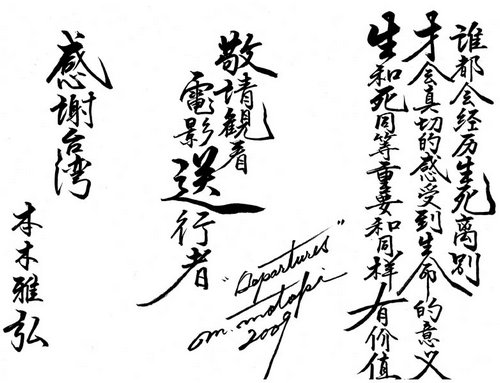 誰都会经历生死离别
才会真切的感受到生命的意义
生和死同等重要和同样有价值
敬請観看
電影送行者
"Departures"
m. motoki
2009
感謝台湾
本木雅弘